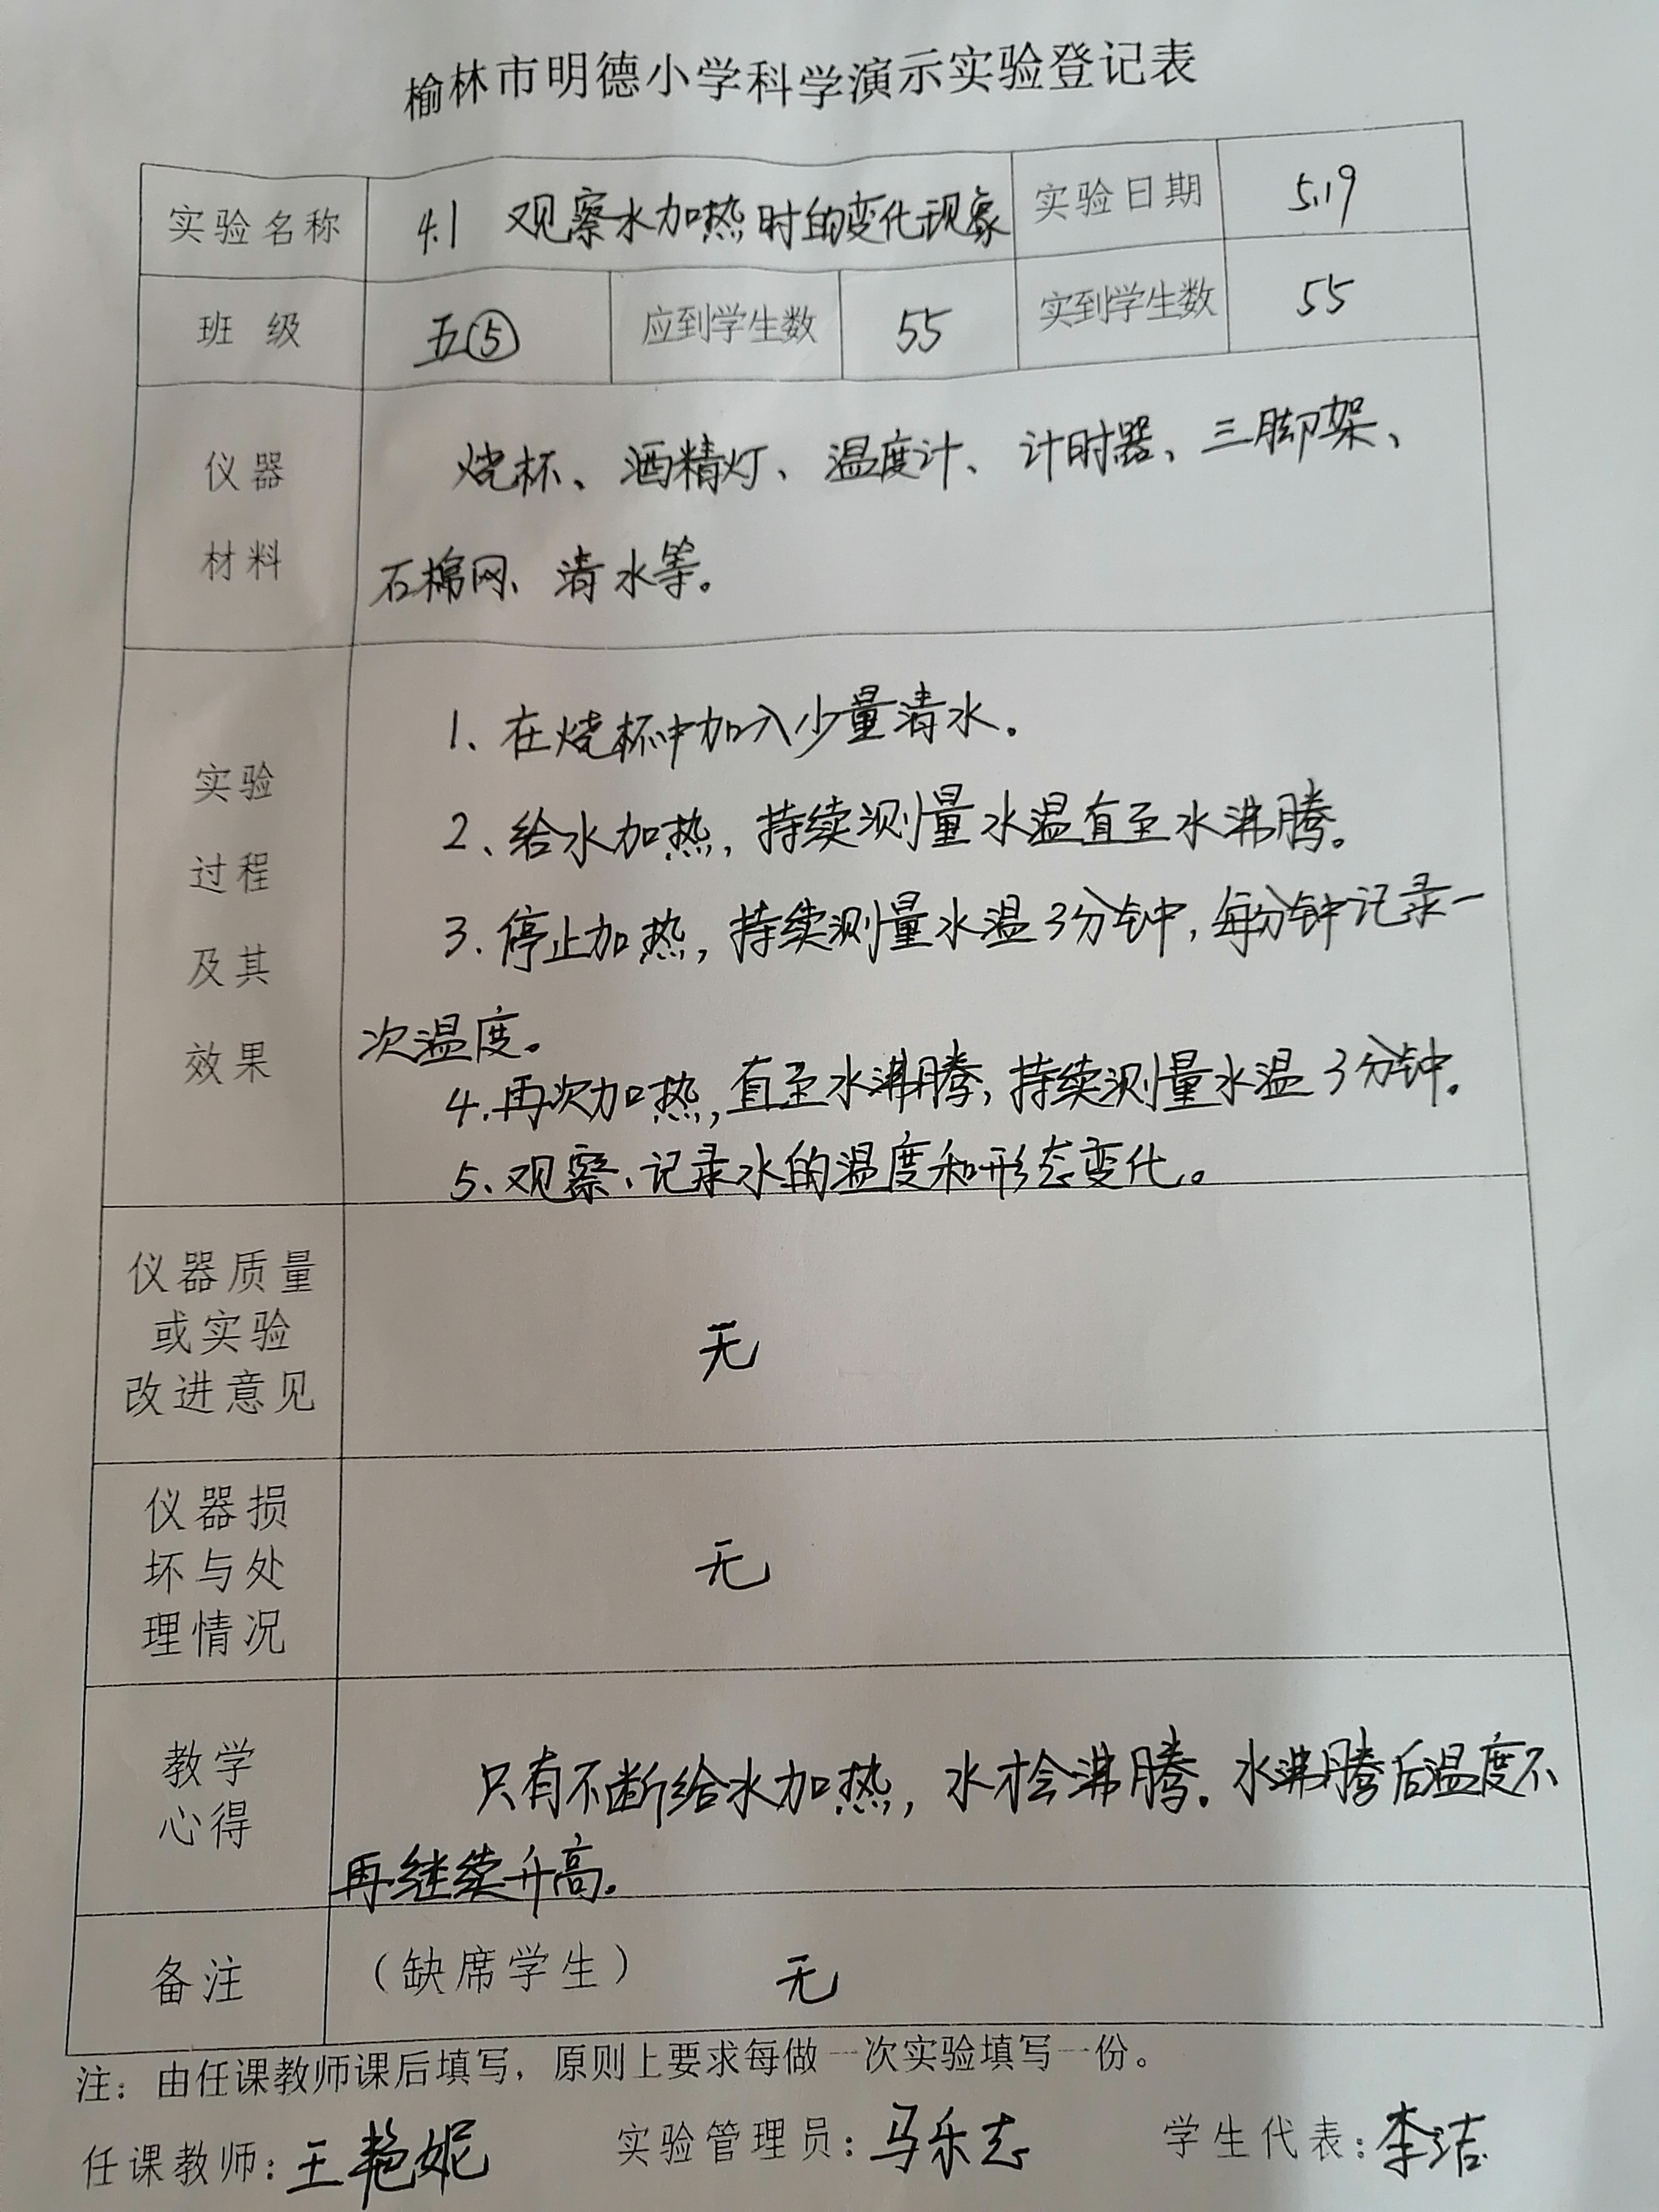 榆林市明德小学科学演示实验登记表
实验名称 4.1 观察水加热时的变化现象 实验日期 5.19
班 级 五⑤ 应到学生数 55 实到学生数 55
仪器
材料
烧杯、酒精灯、温度计、计时器、三脚架、
石棉网、清水等。
实验
过程
及其
效果
1、在烧杯中加入少量清水。
2、给水加热,持续测量水温直至水沸腾。
3.停止加热,持续测量水温3分钟,每分钟记录一
次温度。
4.再次加热,直至水沸腾,持续测量水温3分钟。
5、观察、记录水的温度和形态变化。
仪器质量
或实验
改进意见
无
仪器损
坏与处
理情况
无
教学
心得
只有不断给水加热,水才会沸腾。水沸腾后温度不
再继续升高。
备注 (缺席学生) 无
注:由任课教师课后填写,原则上要求每做一次实验填写一份。
任课教师:王艳妮 实验管理员:马乐志 学生代表:李洁